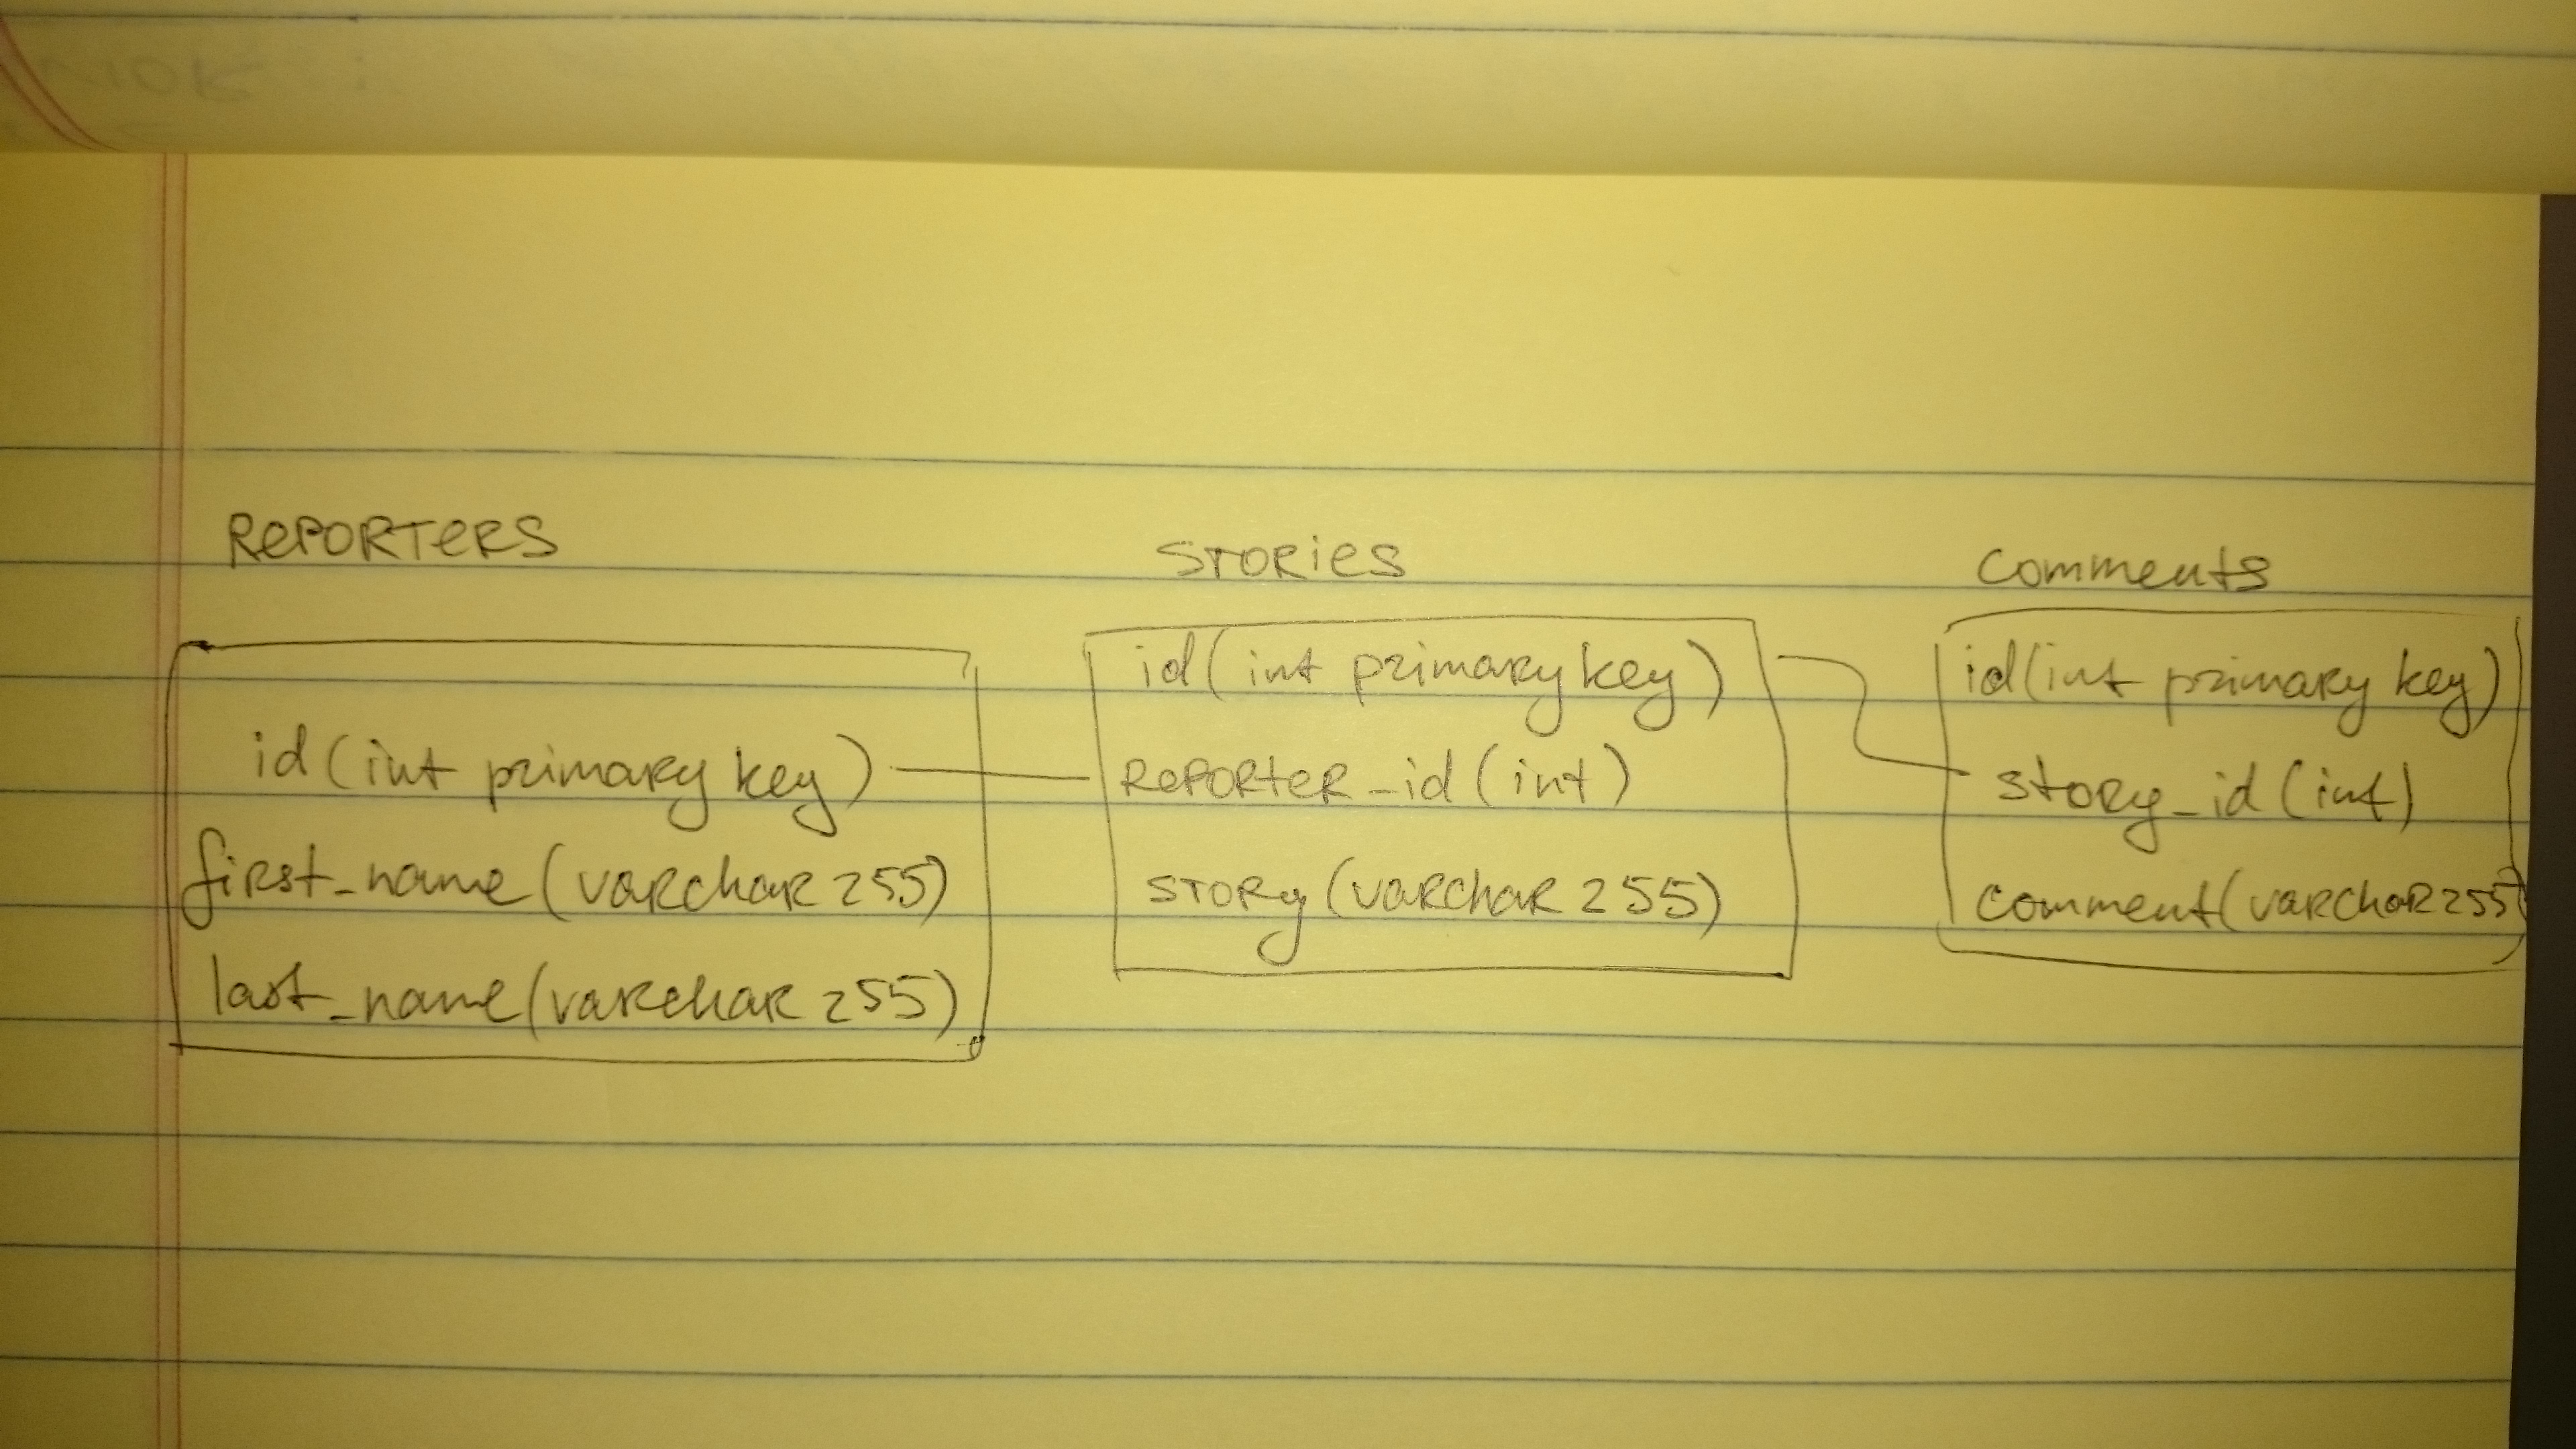 REPORTERS
id (int primary key)
first_name (varchar 255)
last_name (varchar 255)
STORIES
id (int primary key)
REPORTER_id (int)
STORY (varchar 255)
Comments
id (int primary key)
story_id (int)
comment (varchar 255)